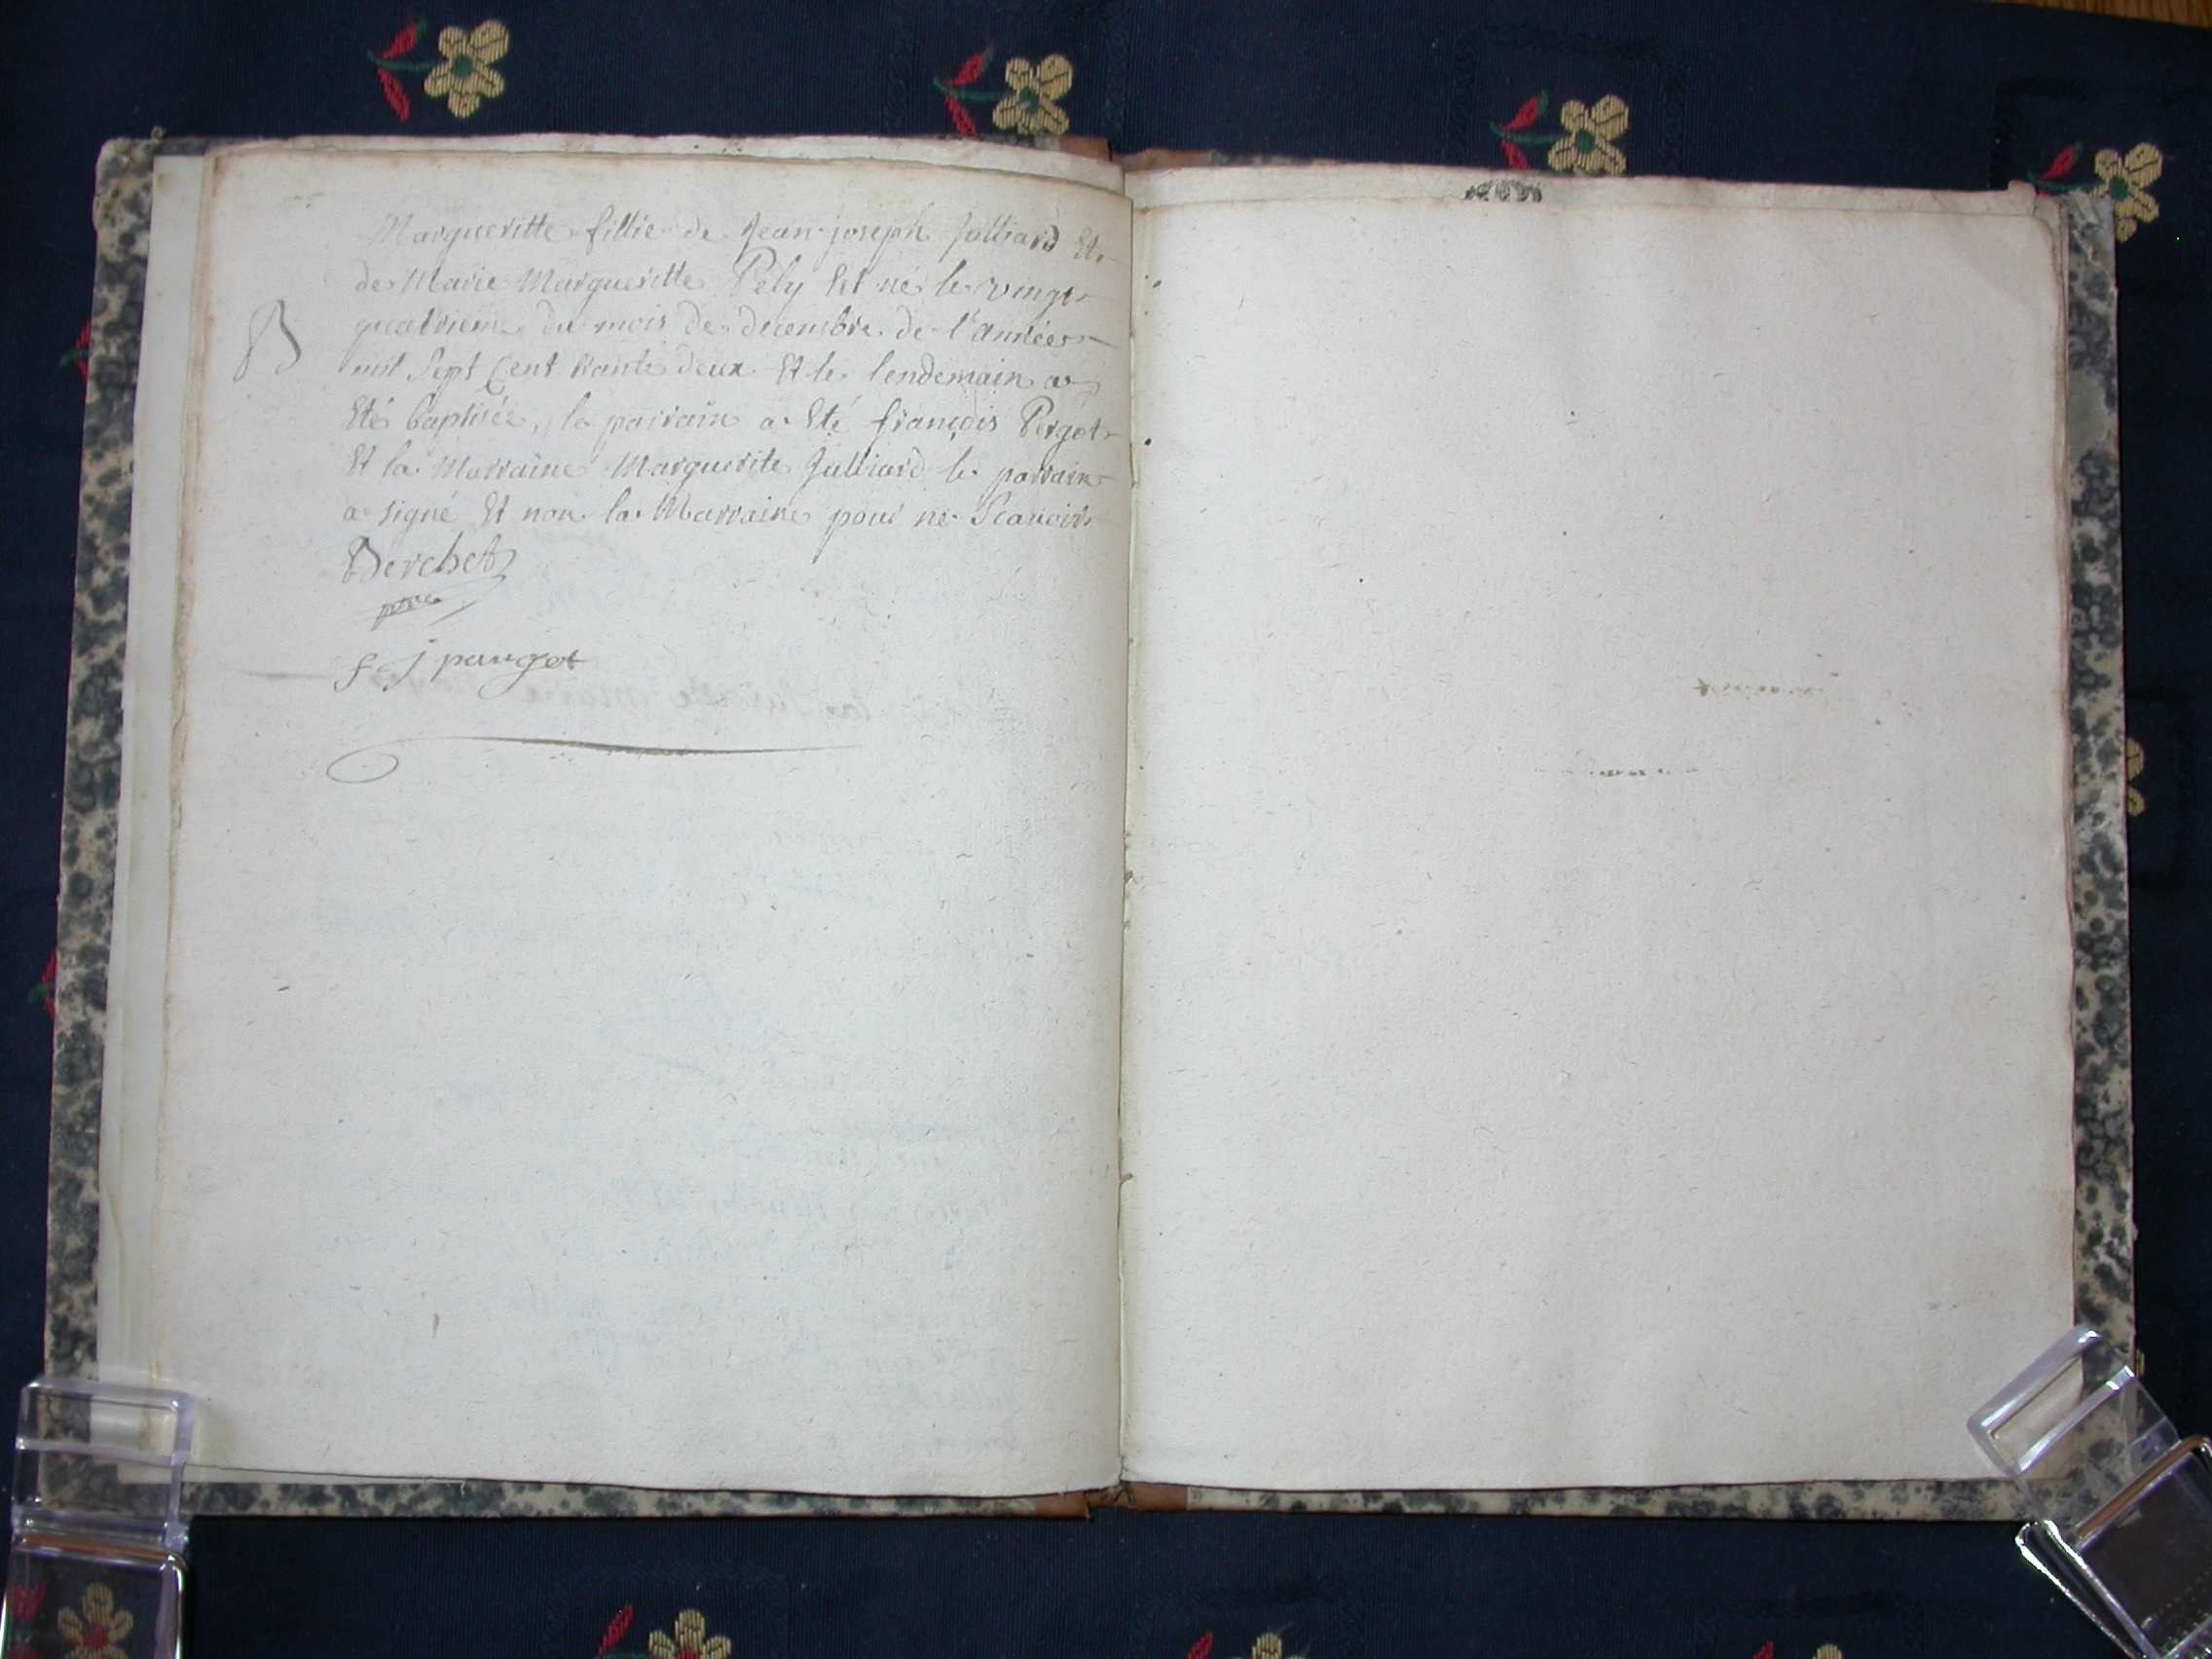 Margueritte fillie de Jean joseph Julliard Et
de Marie Margueritte Pely Est né le vingt
B quatrieme du mois de decembre de l'année
mil Sept Cent trante deux Et le lendemain a
Eté baptisée, le parrain a Eté françois Pergot
Et la Marraine Marguerite Julliard le parrain
a signé Et non la Marraine pour ne Scauoir
Berchet
ptre
f j paugot